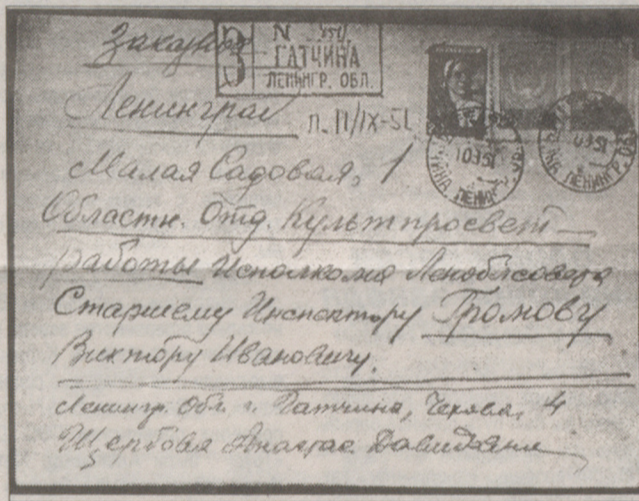 Заказное
З
N
ГАТЧИНА
ЛЕНИНГР. ОБЛ.
Ленинград
п. 11/IX-51
Малая Садовая, 1
Областн. Отд. Культпросвет-
работы Исполкома Леноблсовета
Старшему Инспектору Громову
Виктору Ивановичу.
Ленингр. Обл. г. Гатчина, Чехова, 4
Щербова Анастас. Давидовна